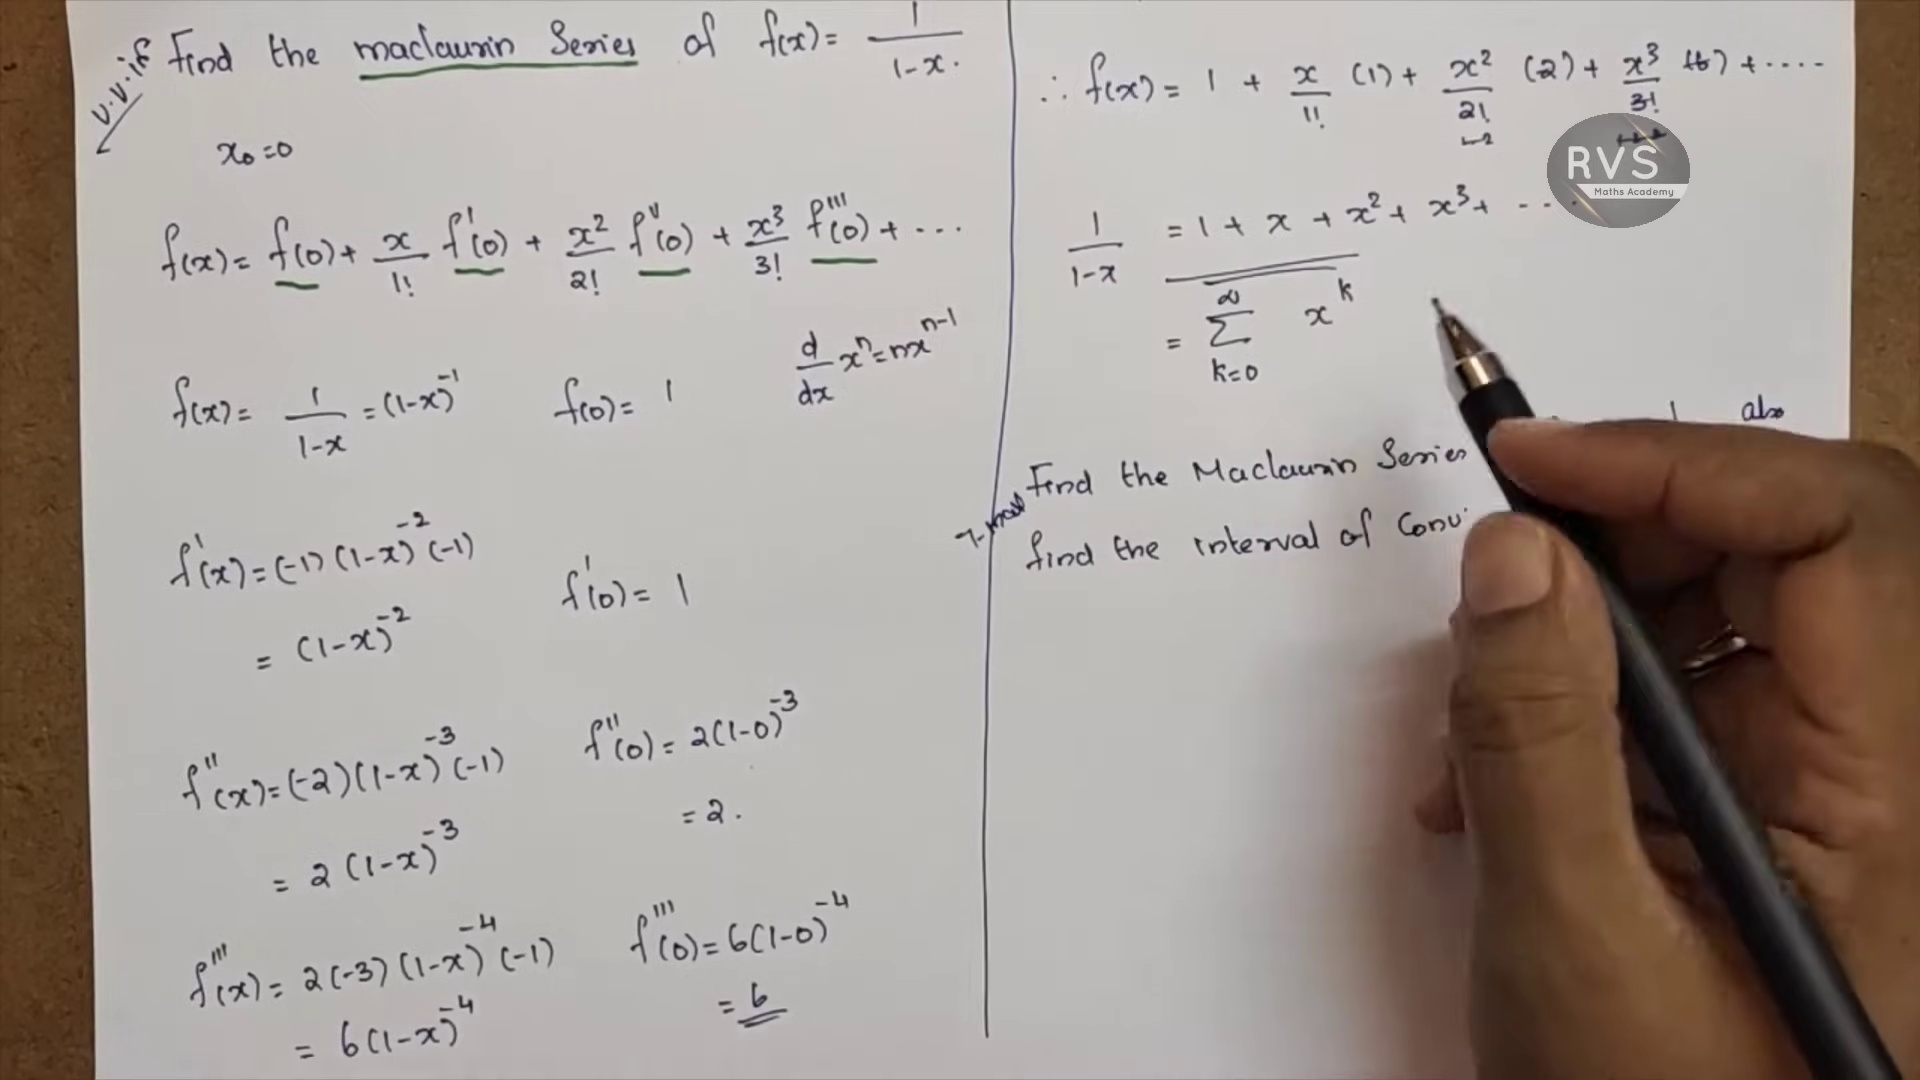 v.v.if Find the maclaurin Series of f(x) = 1/1-x.
x₀=0
f(x) = f(0) + x/1! f'(0) + x²/2! f''(0) + x³/3! f'''(0) + ...
d/dx xⁿ = nxⁿ⁻¹
f(x) = 1/1-x = (1-x)⁻¹ f(0) = 1
f'(x) = (-1) (1-x)⁻² (-1)
= (1-x)⁻² f'(0) = 1
f''(x) = (-2) (1-x)⁻³ (-1) f''(0) = 2(1-0)⁻³
= 2 (1-x)⁻³ = 2.
f'''(x) = 2(-3) (1-x)⁻⁴ (-1) f'''(0) = 6(1-0)⁻⁴
= 6(1-x)⁻⁴ = 6
∴ f(x) = 1 + x/1! (1) + x²/2! (2) + x³/3! (6) + ....
RVS
Maths Academy
1/1-x = 1 + x + x² + x³ + ....
= ∑ₖ₌₀^∞ xᵏ
Find the Maclaurin Series also
find the interval of